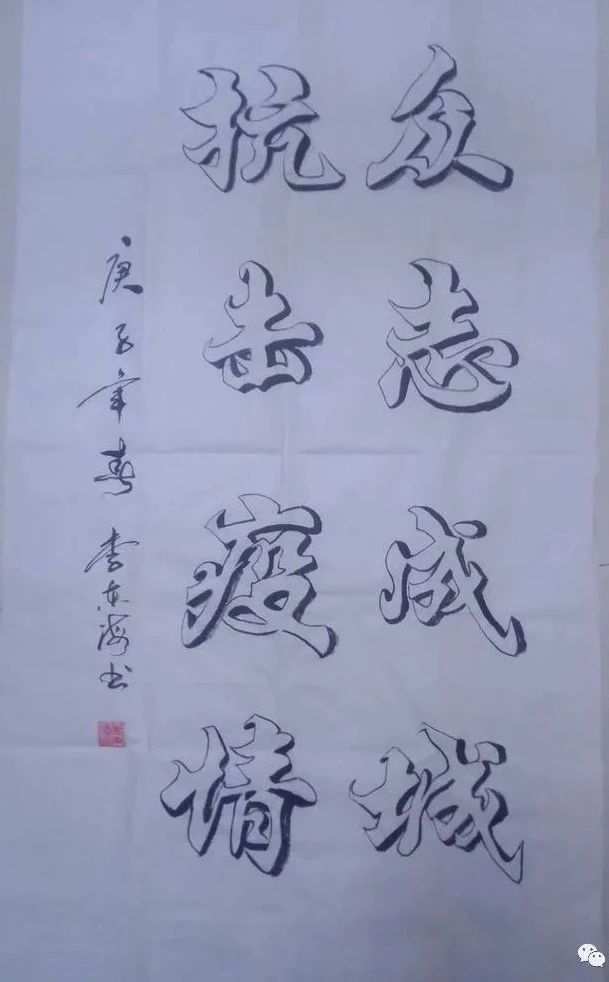 众志成城
抗击疫情
庚子年春 李东海书